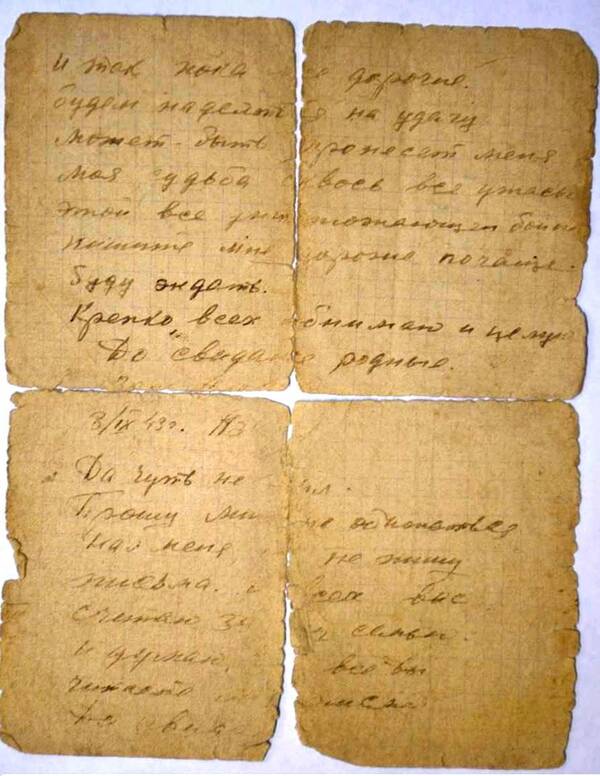 и так пока все дорогие.
будем надеятся на удачу
может быть пронесет меня
моя судьба сквось все ужасы
этой все уничтожающей войны
пишите мне дорогие почаще.
буду ждать.
Крепко всех обнимаю и целую
До свидания родные.
8/IX 43г.
Да чуть не
Прошу не обижаться
на меня, не пишу
письма. всех вас
считаю семьи.
и думаю, все вы
читаете